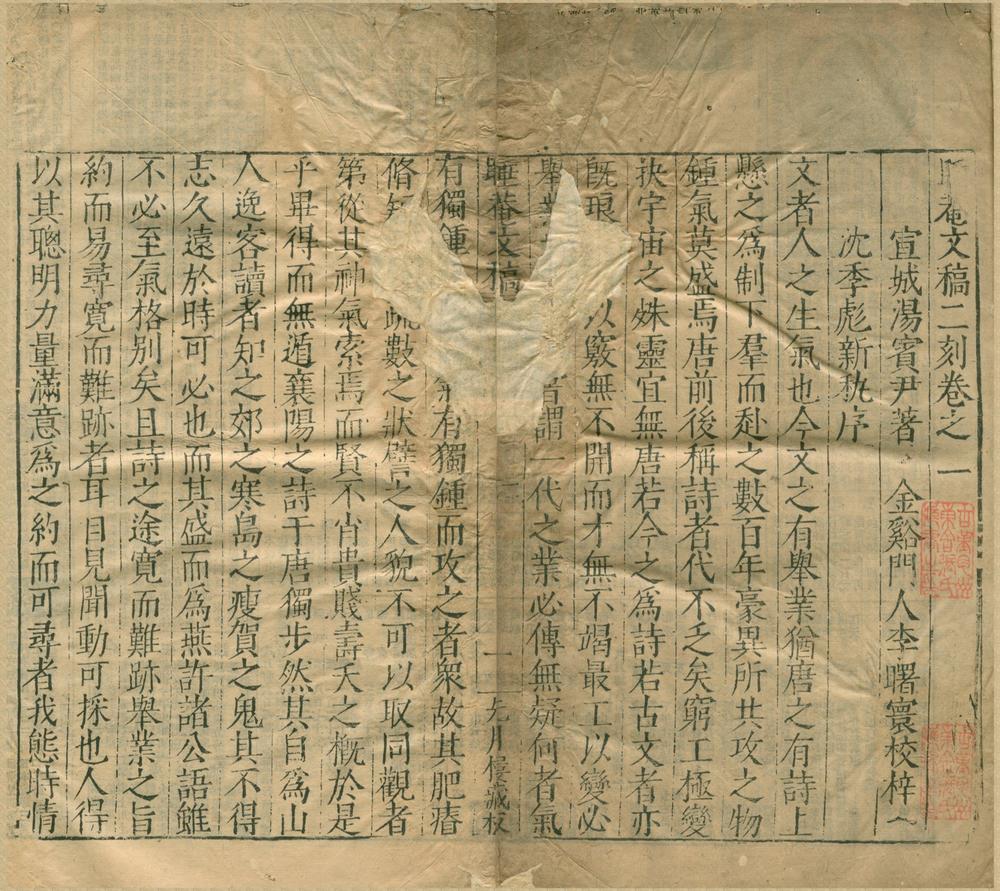 菴文稿二刻卷之一
宣城湯賓尹著 金谿門人李曙寰校梓
沈季彪新埶序
文者人之生氣也今文之有舉業猶唐之有詩上
懸之爲制下羣而赴之數百年豪異所共攻之物
鍾氣莫盛焉唐前後稱詩者代不乏矣窮工極變
抉宇宙之姝靈宜無唐若今之爲詩若古文者亦
旣琅以竅無不開而才無不竭最工以變必
舉業謂一代之業必傳無疑何者氣
睡菴文稿 一 九月優識权
有獨鍾氣有獨鍾而攻之者衆故其肥瘠
脩短疏數之狀譬之人貌不可以取同觀者
第從其神氣索焉而賢不肖貴賤壽夭之概於是
乎畢得而無遁襄陽之詩于唐獨步然其自爲山
人逸客讀者知之郊之寒島之瘦賀之鬼其不得
志久遠於時可必也而其盛而爲燕許諸公語雖
不必至氣格別矣且詩之途寬而難跡舉業之旨
約而易尋寬而難跡者耳目見聞動可採也人得
以其聰明力量滿意爲之約而可尋者我態時情